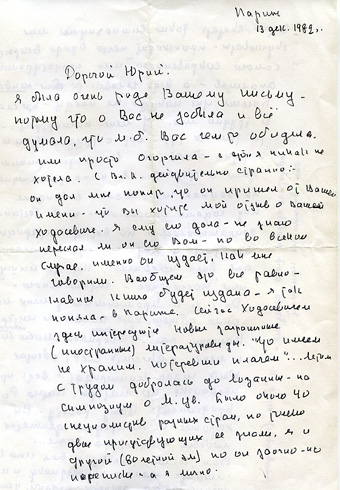 Париж
13 дек. 1982 г.
Дорогой Юрий!
Я была очень рада Вашему письму –
потому что о Вас не забыла и всё
думала, что м.б. Вас чем-то обидела,
или просто огорчила – а этого никак не
хотела. С Вл. действительно странно:
он дал мне понять, что он пришел от Вашего
имени – что Вы хотите мой отзыв о Вашем
Ходасевиче. Я ему его дала – не знаю
переслал ли он его Вам – но во всяком
случае, именно он издает, как мне
говорили. Вообщем это всё равно –
главное книга будет издана – я так
поняла – в Париже. Сейчас Ходасевичем
здесь интересуются новые
(иностранные) литературоведы. "Что имеем
не храним, потерявши плачем"... Летом
с трудом добралась до Лозанны – на
симпозиум о М. Цв. Было около 40
специалистов разных стран, но лично
двое присутствующих ее знали, я и
другой но он заочно – по
переписке – а я лично.